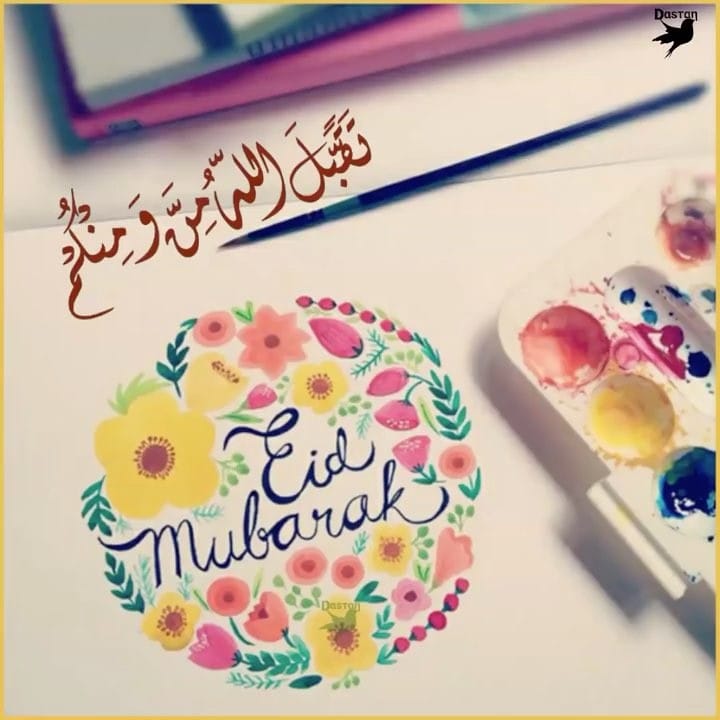 Dastan
تَقَبَّلَ اللهُ مِنَّ وَ مِنكُم
Eid
Mubarak
Dastan